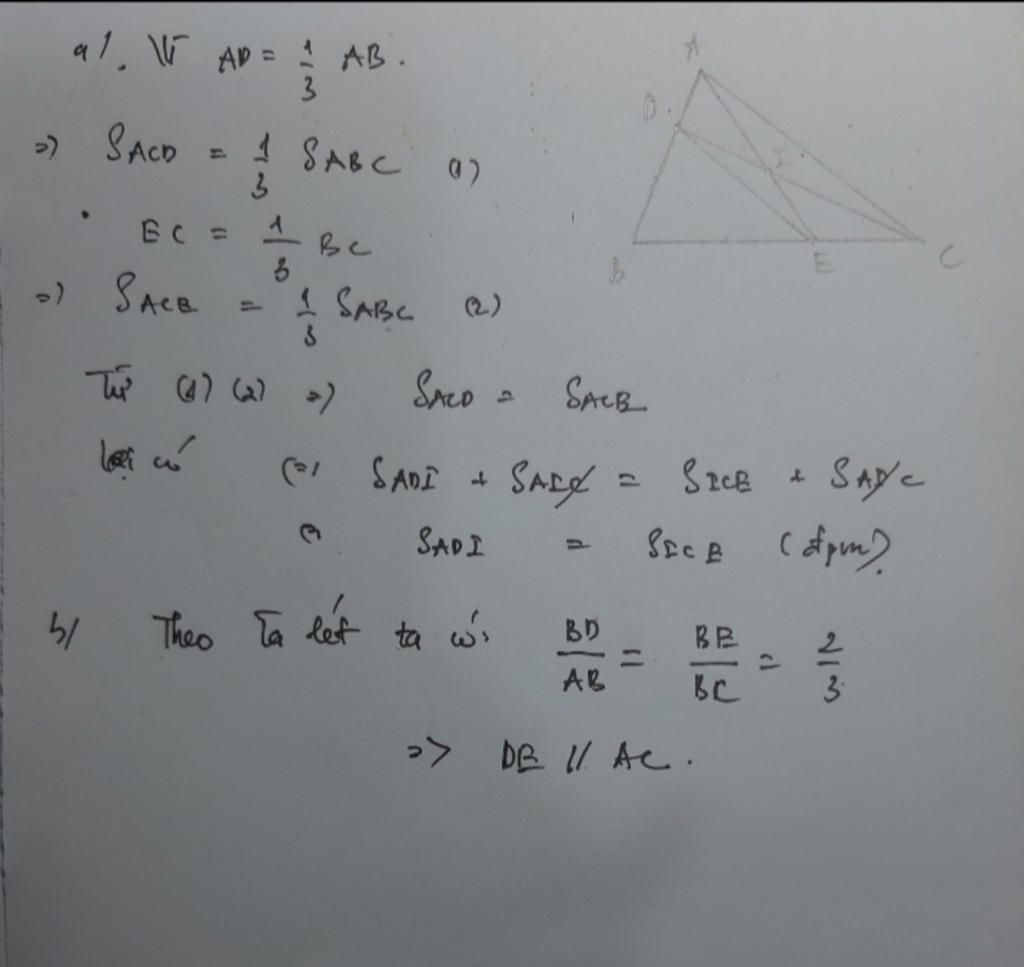 a/. Vì AD = 1/3 AB.
=> SACD = 1/3 SABC (1)
EC = 1/3 BC
=> SACE = 1/3 SABC (2)
Từ (1) (2) => SACD = SACE
lại có (=) SADI + SAIC = SICE + SAIC
SADI = SICE (đpcm).
b/ Theo Ta lét ta có: BD/AB = BE/BC = 2/3
=> DE // AC.
A
D
I
B
E
C